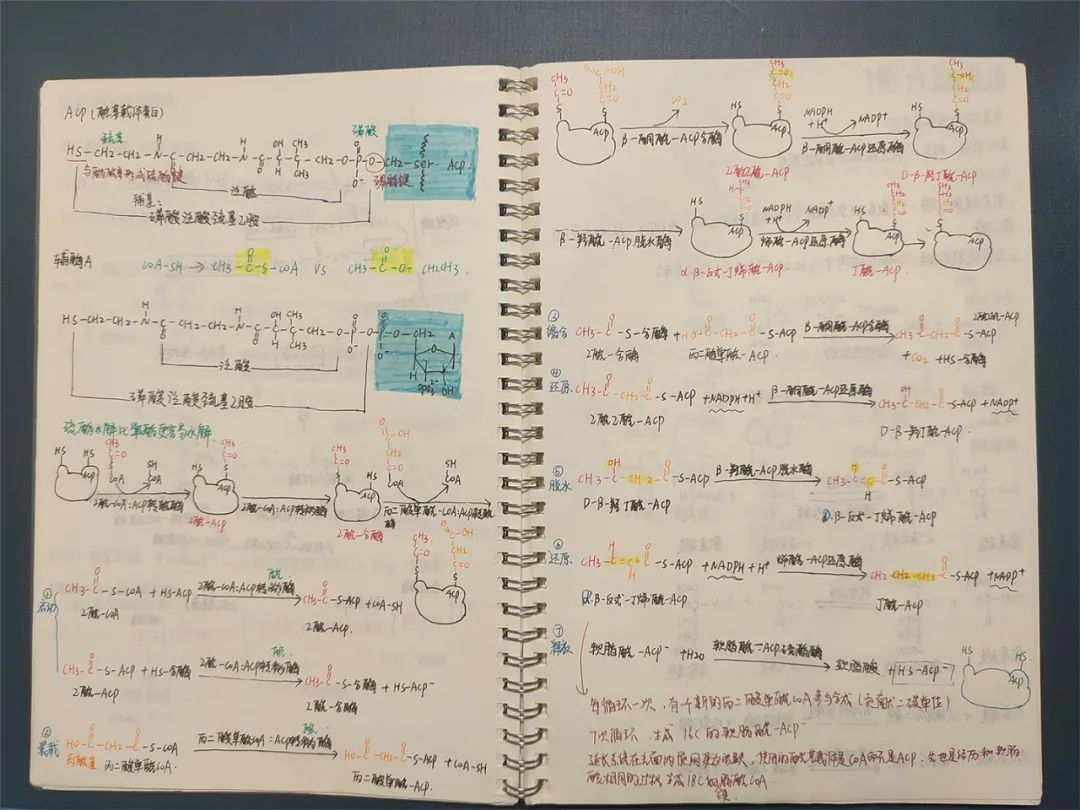 ACP(酰基载体蛋白)
巯基
磷酸
HS-CH2-CH2-N-C-CH2-CH2-N-C-C-C-CH2-O-P-O-CH2-Ser ACP
与酰酸单形成硫酯键
磷酯键
泛酸
辅基:
磷酸泛酸巯基乙胺
辅酶A
COA-SH → CH3-C-S-COA VS CH3-C-O-CH2CH3.
HS-CH2-CH2-N-C-CH2-CH2-N-C-C-C-CH2-O-P-O-P-O-CH2 A
泛酸
磷酸泛酸巯基乙胺
硫酯水解比氧酯更容易水解
乙酰-COA:ACP转酰酶
乙酰-ACP
乙酰-COA:ACP转酰酶
乙酰-合酶
丙二酸单酰-COA:ACP转酰酶
① 启动
CH3-C-S-COA + HS-ACP 乙酰-COA:ACP转酰酶 CH3-C-S-ACP + COA-SH
乙酰-COA
乙酰-ACP.
CH3-C-S-ACP + HS-合酶 乙酰-COA:ACP转酰酶 CH3-C-S-合酶 + HS-ACP
乙酰-ACP
乙酰-合酶
② 装载
HO-C-CH2-C-S-COA 丙二酸单酰COA:ACP转酰酶 HO-C-CH2-C-S-ACP + COA-SH
丙二酸单酰COA.
丙二酸单酰-ACP.
CO2
β-酮酰-ACP合酶
NADPH + H+ NADP+
β-酮酰-ACP还原酶
乙酰乙酰-ACP
D-β-羟丁酰-ACP
β-羟酰-ACP脱水酶
NADPH + H+ NADP+
烯酰-ACP还原酶
α.β-反式-丁烯酰-ACP
丁酰-ACP.
③ 缩合 CH3-C-S-合酶 + HO-C-CH2-C-S-ACP β-酮酰-ACP合酶 CH3-C-CH2-C-S-ACP
乙酰乙酰-ACP
乙酰-合酶 丙二酸单酰-ACP.
+ CO2 + HS-合酶
④ 还原 CH3-C-CH2-C-S-ACP + NADPH + H+ β-酮酰-ACP还原酶 CH3-C-CH2-C-S-ACP + NADP+
乙酰乙酰-ACP
D-β-羟丁酰-ACP.
⑤ 脱水 CH3-C-CH2-C-S-ACP β-羟酰-ACP脱水酶 CH3-C=C-C-S-ACP
D-β-羟丁酰-ACP
α.β-反式-丁烯酰-ACP
⑥ 还原 CH3-C=C-C-S-ACP + NADPH + H+ 烯酰-ACP还原酶 CH2-CH2-CH2-C-S-ACP + NADP+
α.β-反式-丁烯酰-ACP
丁酰-ACP
⑦ 释放 软脂酰-ACP + H2O 软脂酰-ACP硫酯酶 软脂酸 + HS-ACP
每循环一次,有一个新的丙二酸单酰COA参与合成(贡献二碳单位)
7次循环,生成16C的软脂酰-ACP
延长系统在光面内质网更为活跃,使用的酰基载体是COA而不是ACP.
酸相同的过程,生成18C的硬脂酰COA.